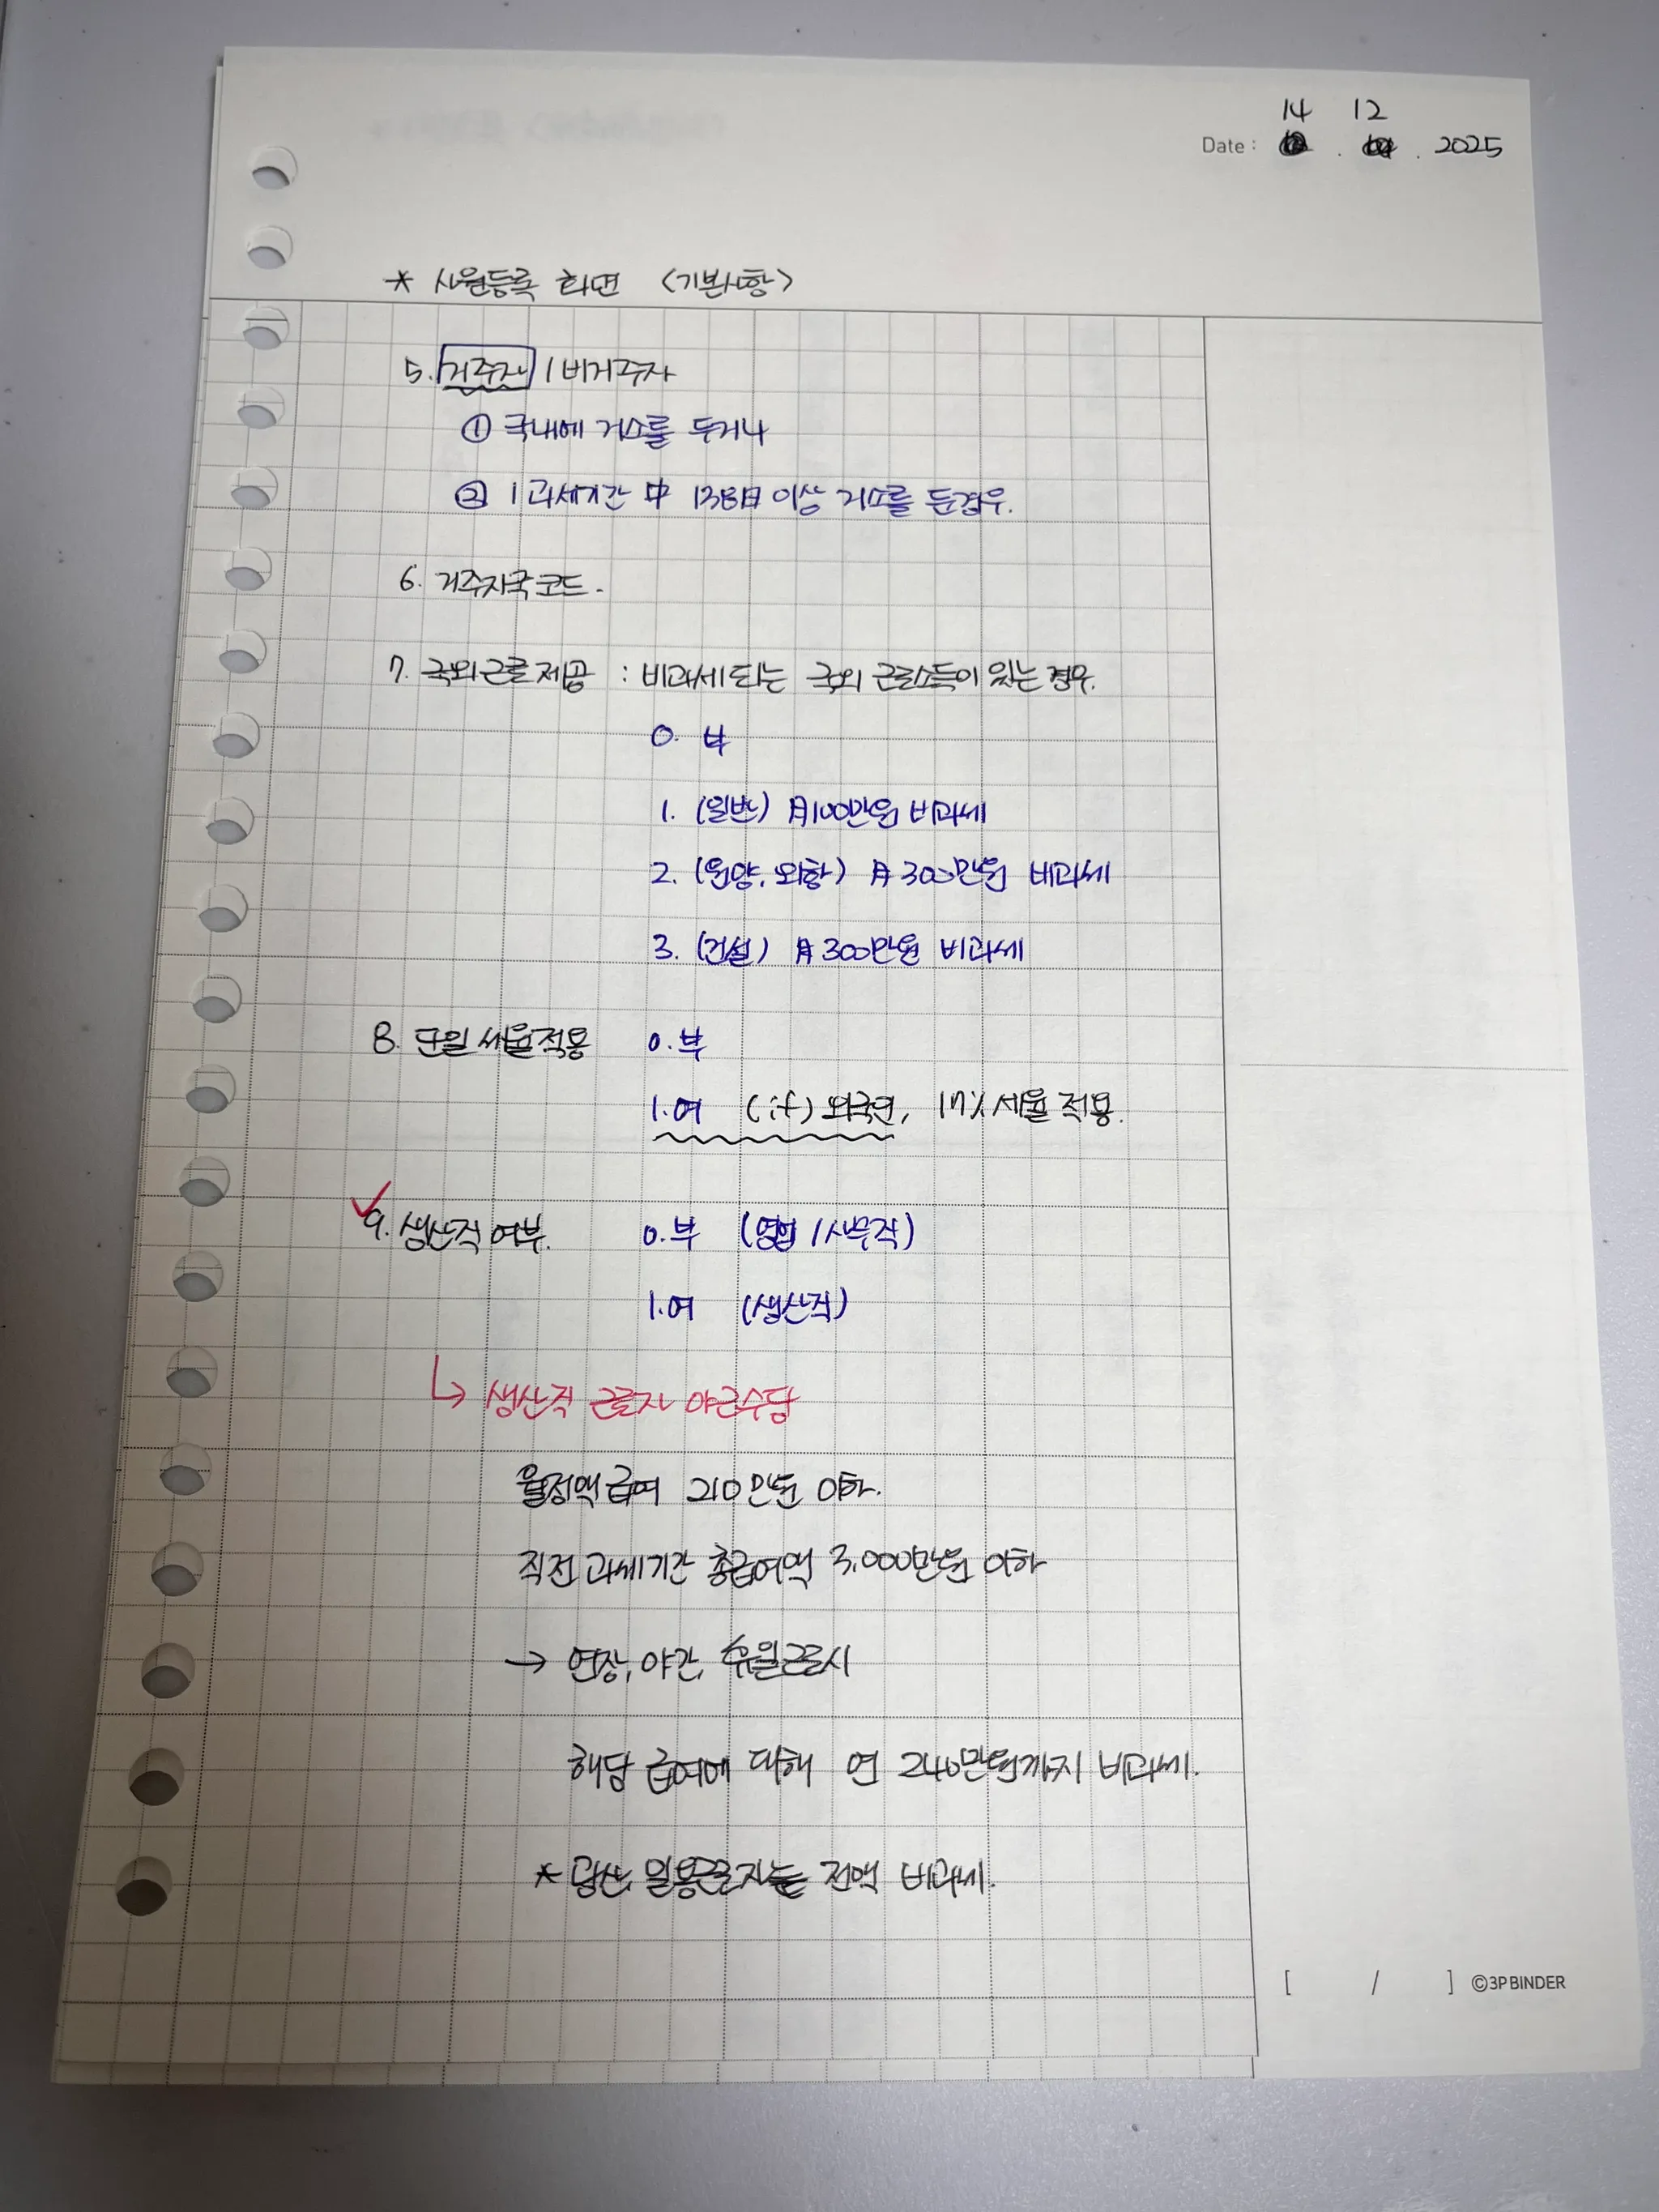 14 12
Date : . . 2025
* 사원등록 화면 <기본사항>
5. 거주자 / 비거주자
① 국내에 거소를 두거나
② 1과세기간 中 138日 이상 거소를 둔경우.
6. 거주지국코드.
7. 국외근로제공 : 비과세되는 국외 근로소득이 있는 경우.
0. 부
1. (일반) 月100만원 비과세
2. (원양, 외항) 月 300만원 비과세
3. (건설) 月 300만원 비과세
8. 단일세율적용 0. 부
1. 여 (if) 외국인, 17% 세율 적용.
9. 생산직 여부. 0. 부 (영업 / 사무직)
1. 여 (생산직)
↳ 생산직 근로자 야근수당
월정액급여 210만원 이하.
직전 과세기간 총급여액 3,000만원 이하
→ 연장, 야간, 휴일근로시
해당 급여에 대해 연 240만원까지 비과세.
* 광산, 일용근로자는 전액 비과세.
[ / ] ©3P BINDER